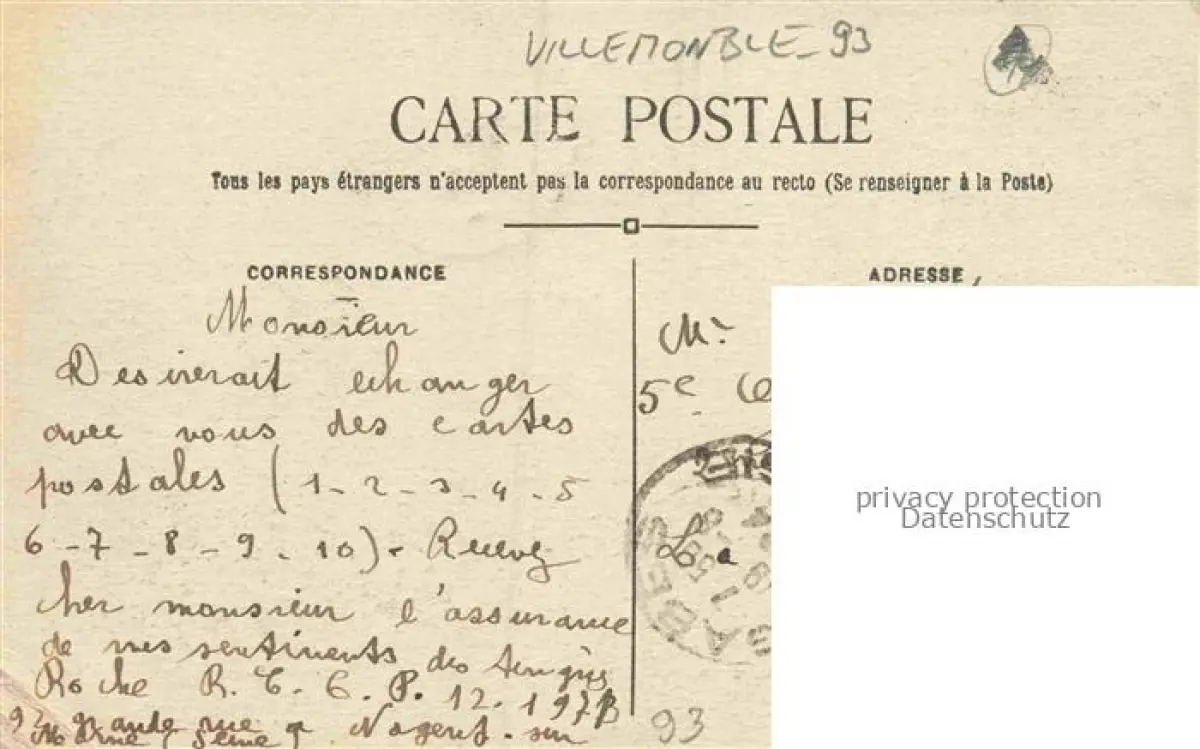 VILLEMONBLE - 93
CARTE POSTALE
Tous les pays étrangers n'acceptent pas la correspondance au recto (Se renseigner à la Poste)
CORRESPONDANCE
Monsieur
Desirerait echanger
avec vous des cartes
postales (1 - 2 - 3 - 4 - 5
6 - 7 - 8 - 9 - 10) - Recevez
cher monsieur l'assurance
de mes sentiments
Roche R. C. C. P. 12.197B
grande rue à Nogent-sur
Marne (Seine)
ADRESSE
Mr
5e
La
GABES
93
privacy protection
Datenschutz